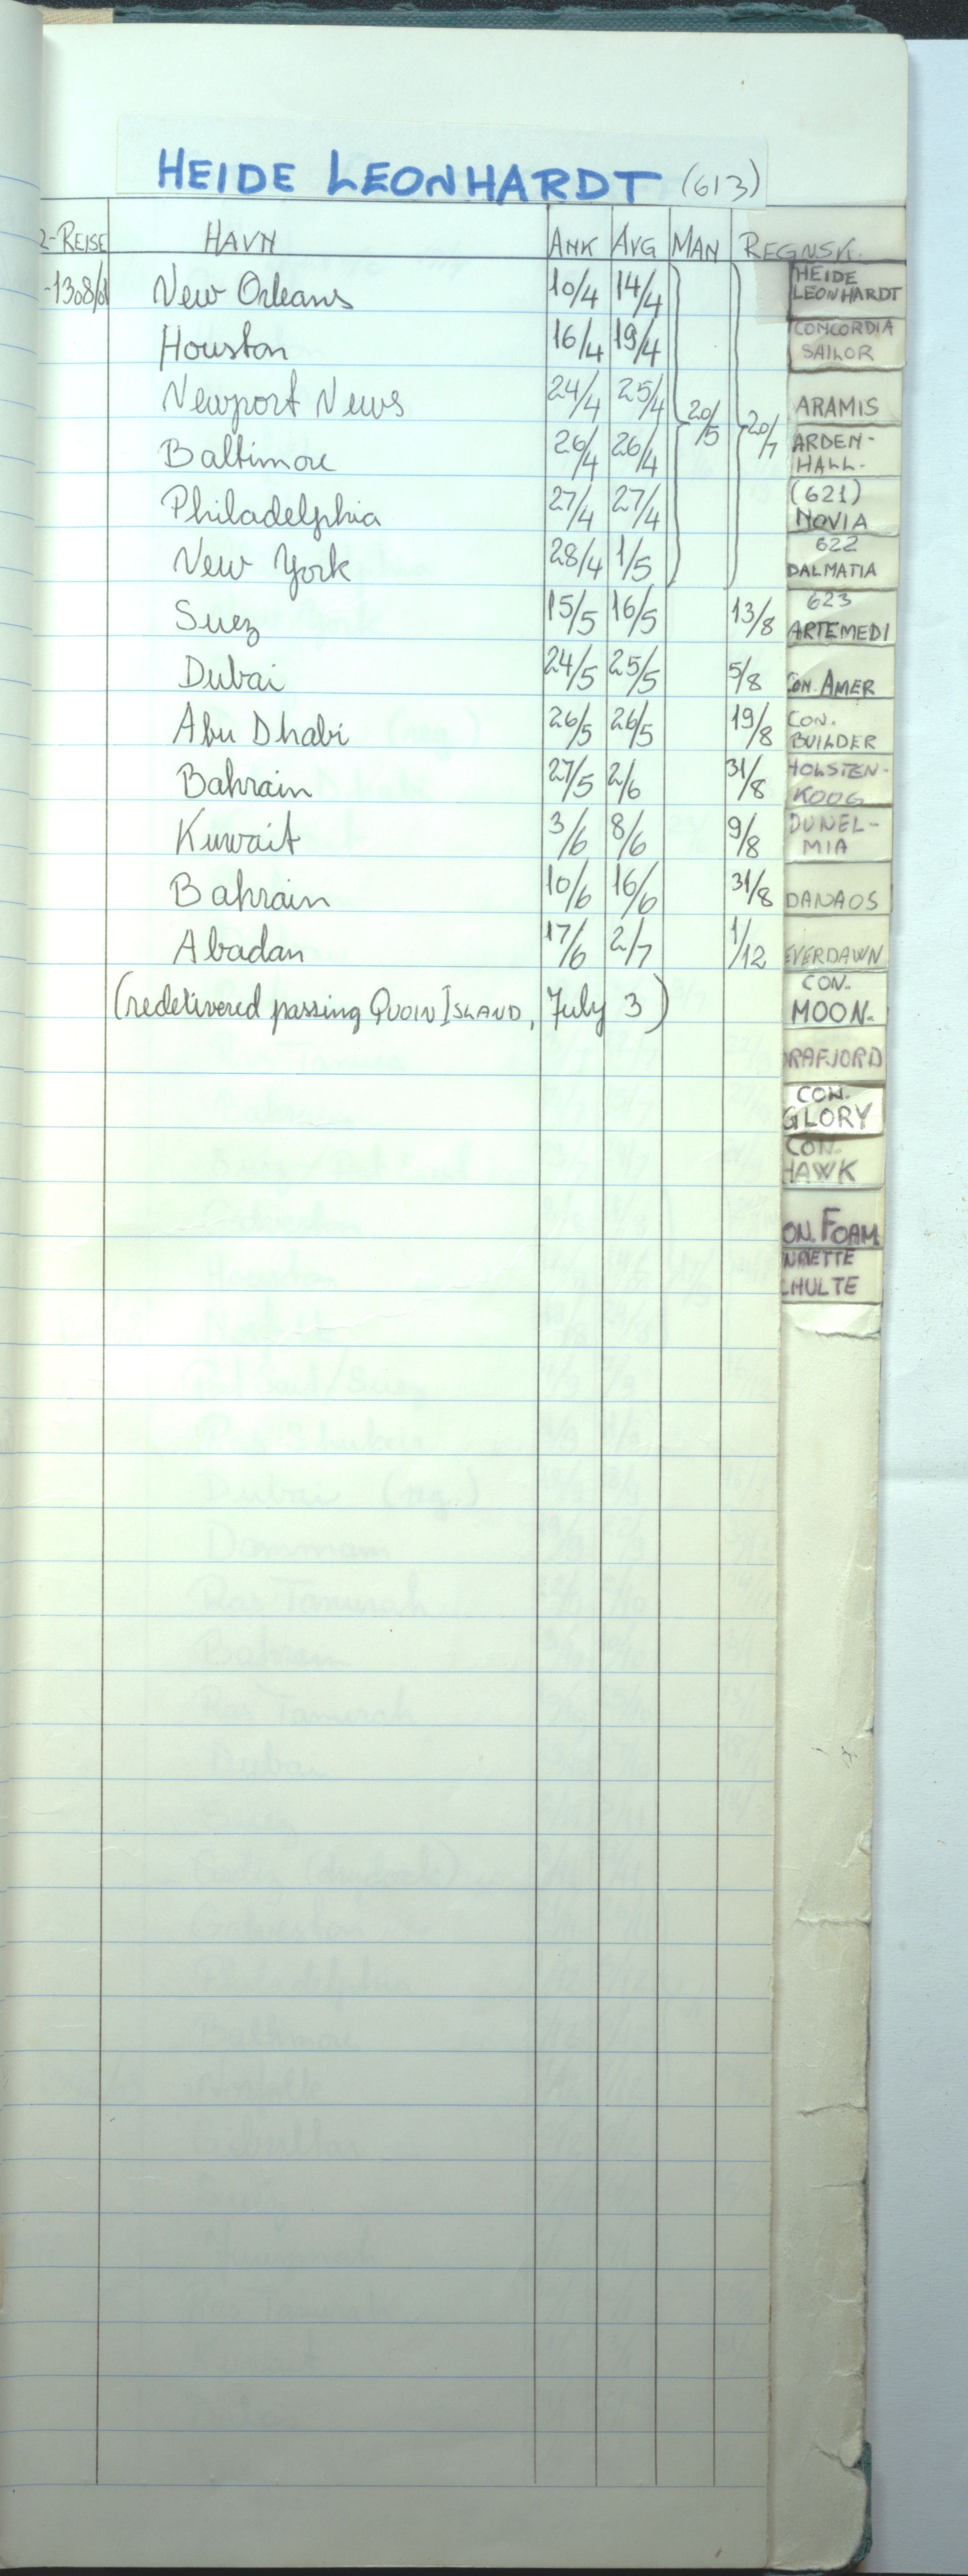 HEIDE LEONHARDT (613)
2-REISE HAVN ANK AVG MAN REGNSK.
-1308/01 New Orleans 10/4 14/4
Houston 16/4 19/4
Newport News 24/4 25/4 20/5 20/7
Baltimore 26/4 26/4
Philadelphia 27/4 27/4
New York 28/4 1/5
Suez 15/5 16/5 13/8
Dubai 24/5 25/5 5/8
Abu Dhabi 26/5 26/5 19/8
Bahrain 27/5 2/6 31/8
Kuwait 3/6 8/6 9/8
Bahrain 10/6 16/6 31/8
Abadan 17/6 2/7 1/12
(redelivered passing QUOIN ISLAND, July 3)
HEIDE
LEONHARDT
CONCORDIA
SAILOR
ARAMIS
ARDEN-
HALL.
(621)
NOVIA
622
DALMATIA
623
ARTEMEDI
CON. AMER
CON.
BUILDER
HOLSTEN-
KOOG
DUNEL-
MIA
DANAOS
EVERDAWN
CON.
MOON.
RAFJORD
CON.
GLORY
CON.
HAWK
ON. FOAM
RIETTE
CHULTE